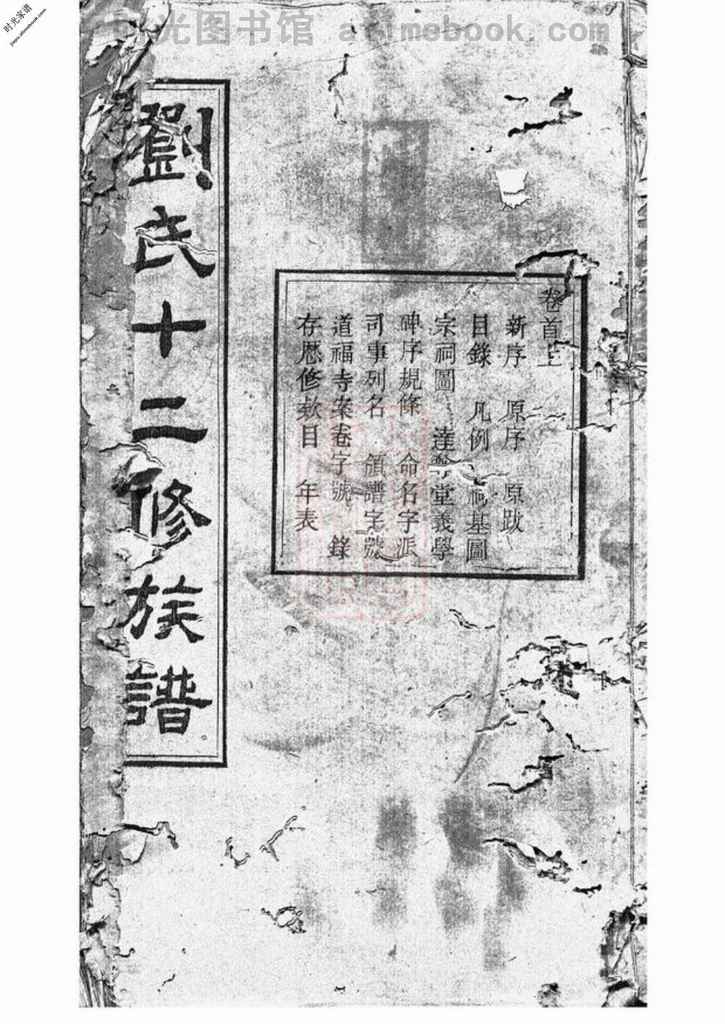 时光图书馆 arimebook.com
时光家谱
劉氏十二修族譜
卷首上
新序 原序 原跋
目錄 凡例 祠基圖
宗祠圖 達 堂義學
碑序規條 命名字派
司事列名 領譜字號
道福寺案卷字號 錄
存歷修款目 年表